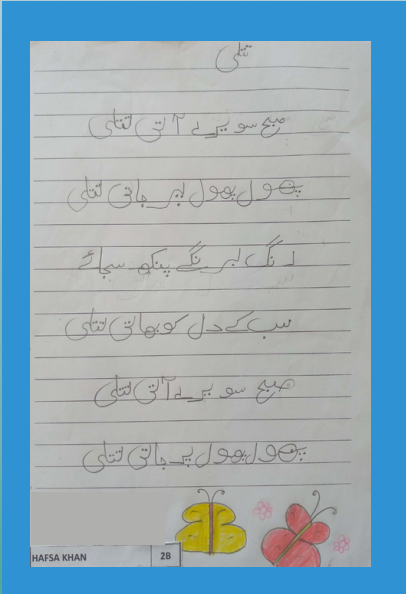 تتلی
صبح سویرے آتی تتلی
پھول پھول پر جاتی تتلی
رنگ برنگے پنکھ سجائے
سب کے دل کو بھاتی تتلی
صبح سویرے آتی تتلی
پھول پھول پر جاتی تتلی
HAFSA KHAN
2B